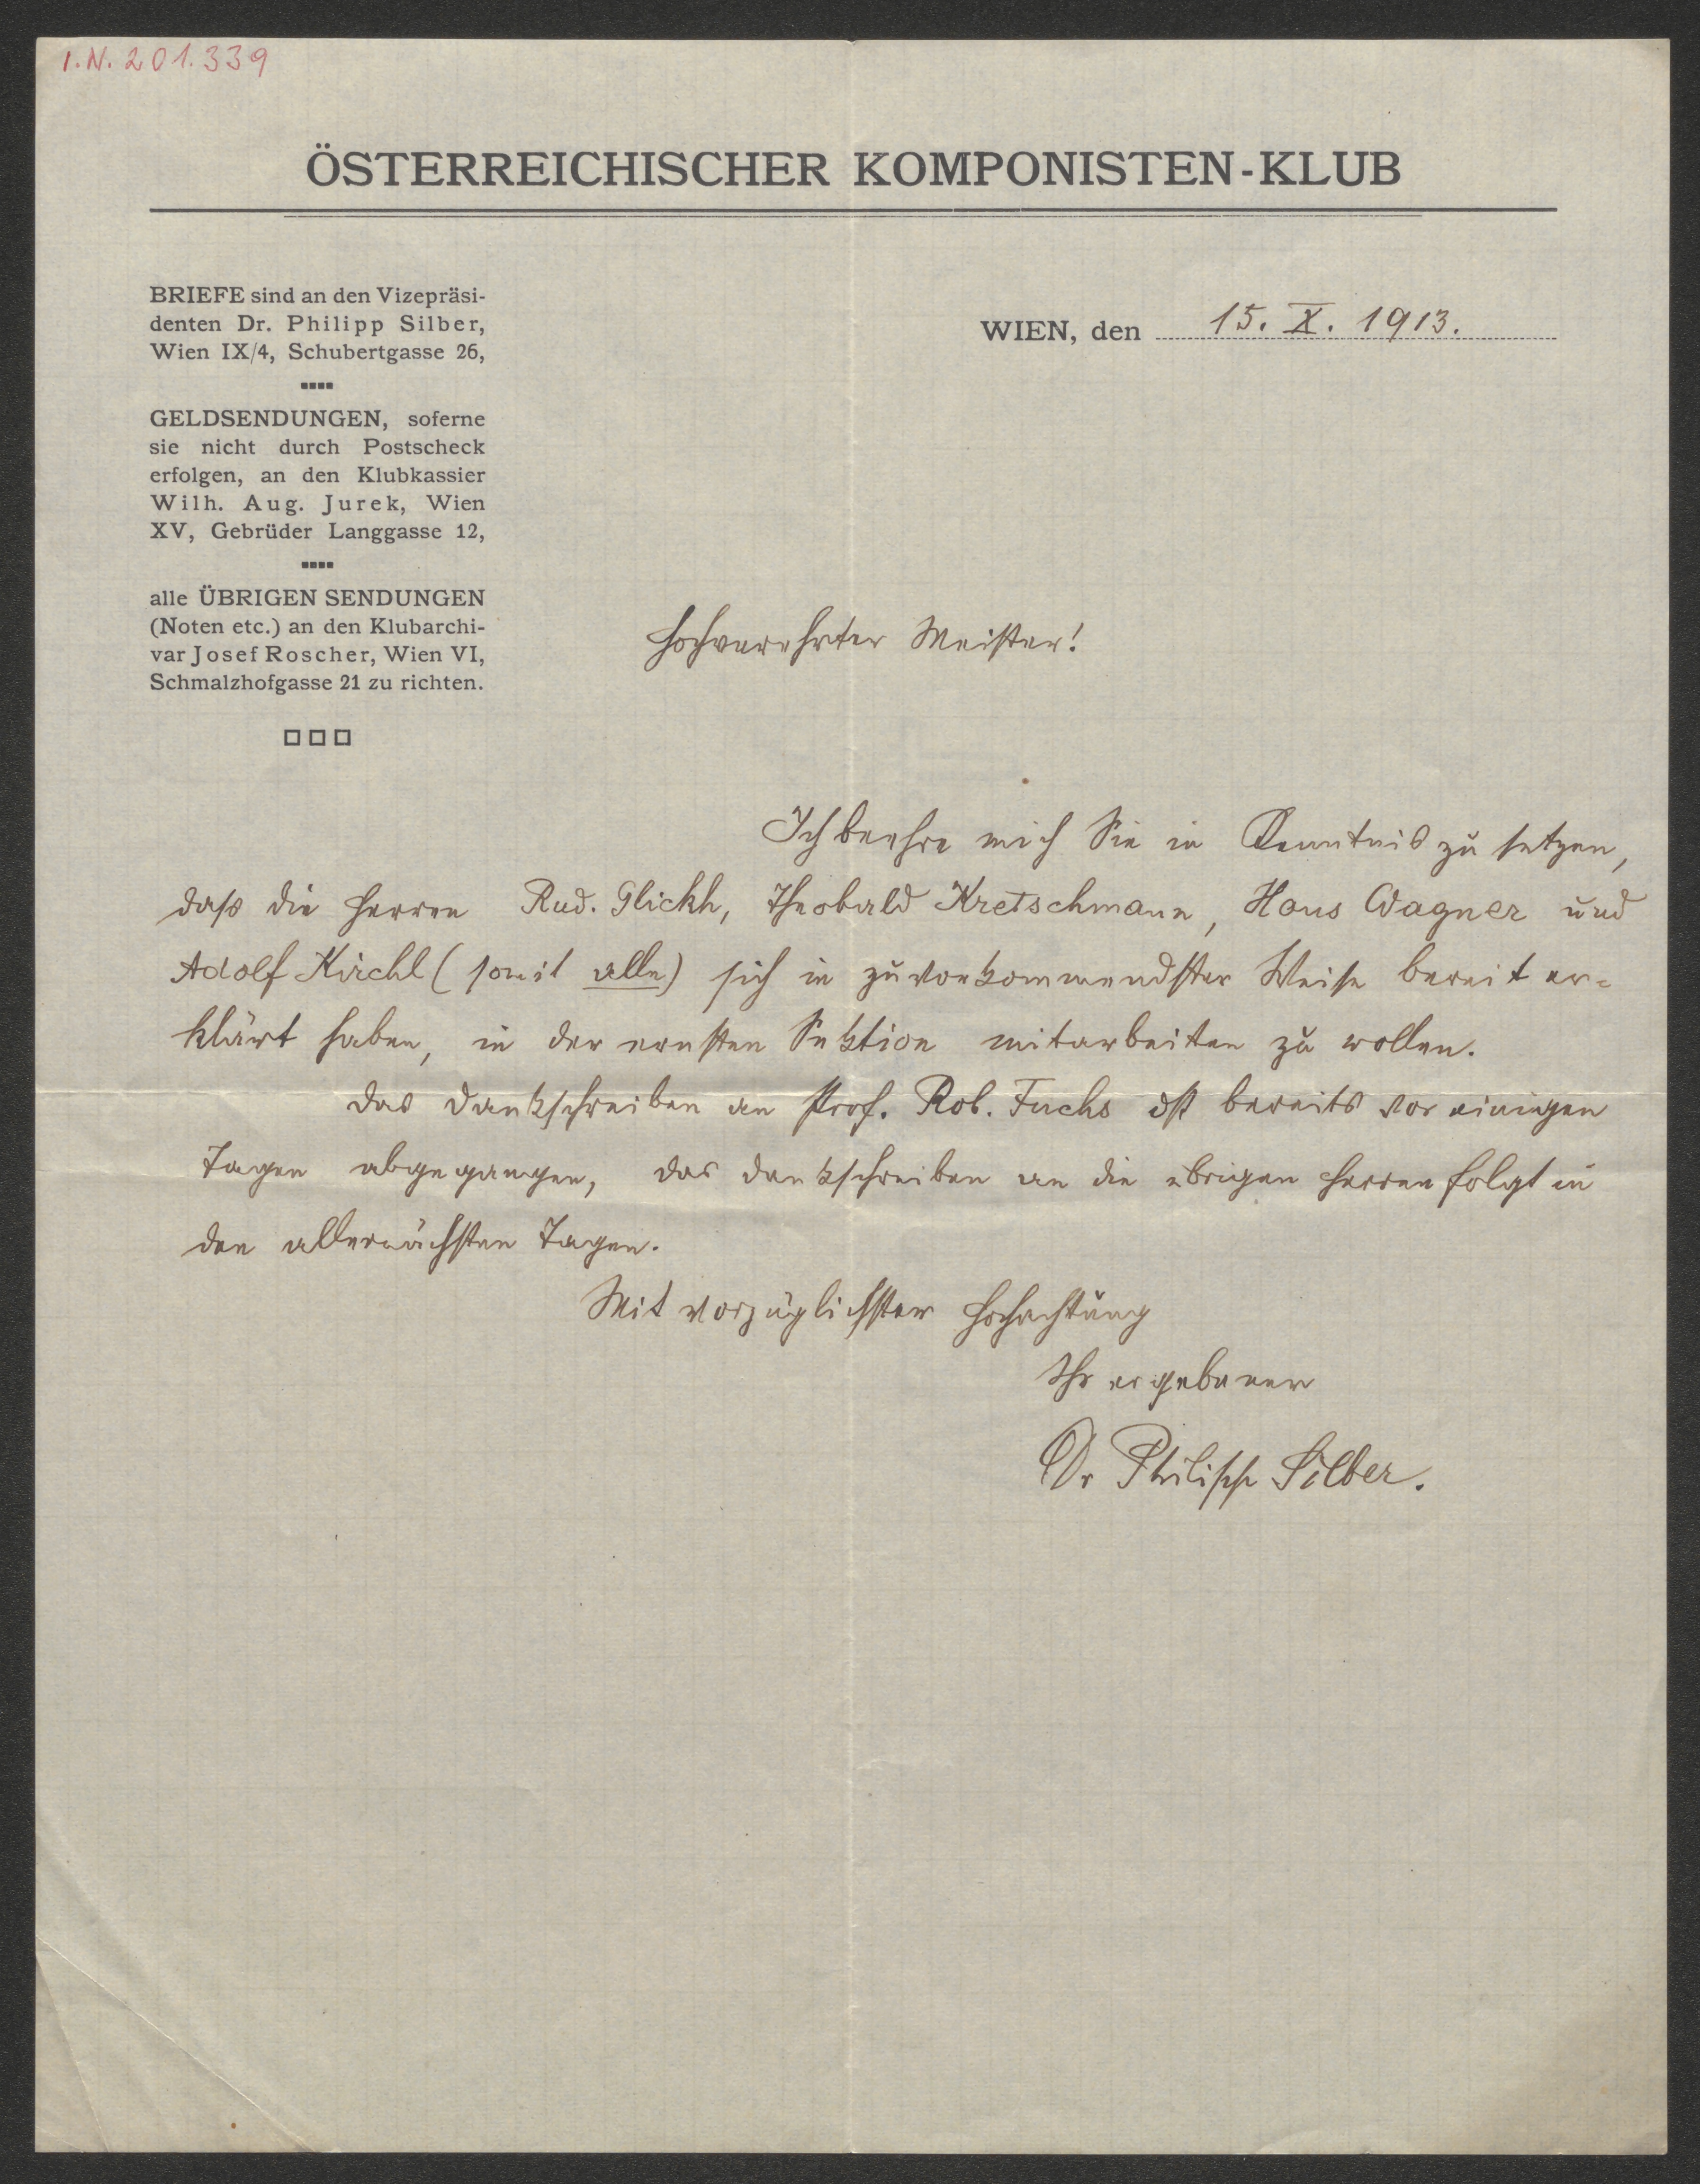 I.N. 201.339
ÖSTERREICHISCHER KOMPONISTEN-KLUB
BRIEFE sind an den Vizepräsi-
denten Dr. Philipp Silber,
Wien IX/4, Schubertgasse 26,
GELDSENDUNGEN, soferne
sie nicht durch Postscheck
erfolgen, an den Klubkassier
Wilh. Aug. Jurek, Wien
XV, Gebrüder Langgasse 12,
alle ÜBRIGEN SENDUNGEN
(Noten etc.) an den Klubarchi-
var Josef Roscher, Wien VI,
Schmalzhofgasse 21 zu richten.
WIEN, den 15. X. 1913.
Hochverehrter Meister!
Ich beehre mich Sie in Kenntnis zu setzen,
dass die Herren Rud. Glickh, Theobald Kretschmann, Hans Wagner und
Adolf Kirchl (somit alle) sich in zuvorkommendster Weise bereit er=
klärt haben, in der ernsten Sektion mitarbeiten zu wollen.
Das Dankschreiben an Prof. Rob. Fuchs ist bereits vor einigen
Tagen abgegangen, das Dankschreiben an die übrigen Herren folgt in
den allernächsten Tagen.
Mit vorzüglichster Hochachtung
Ihr ergebener
Dr Philipp Silber.